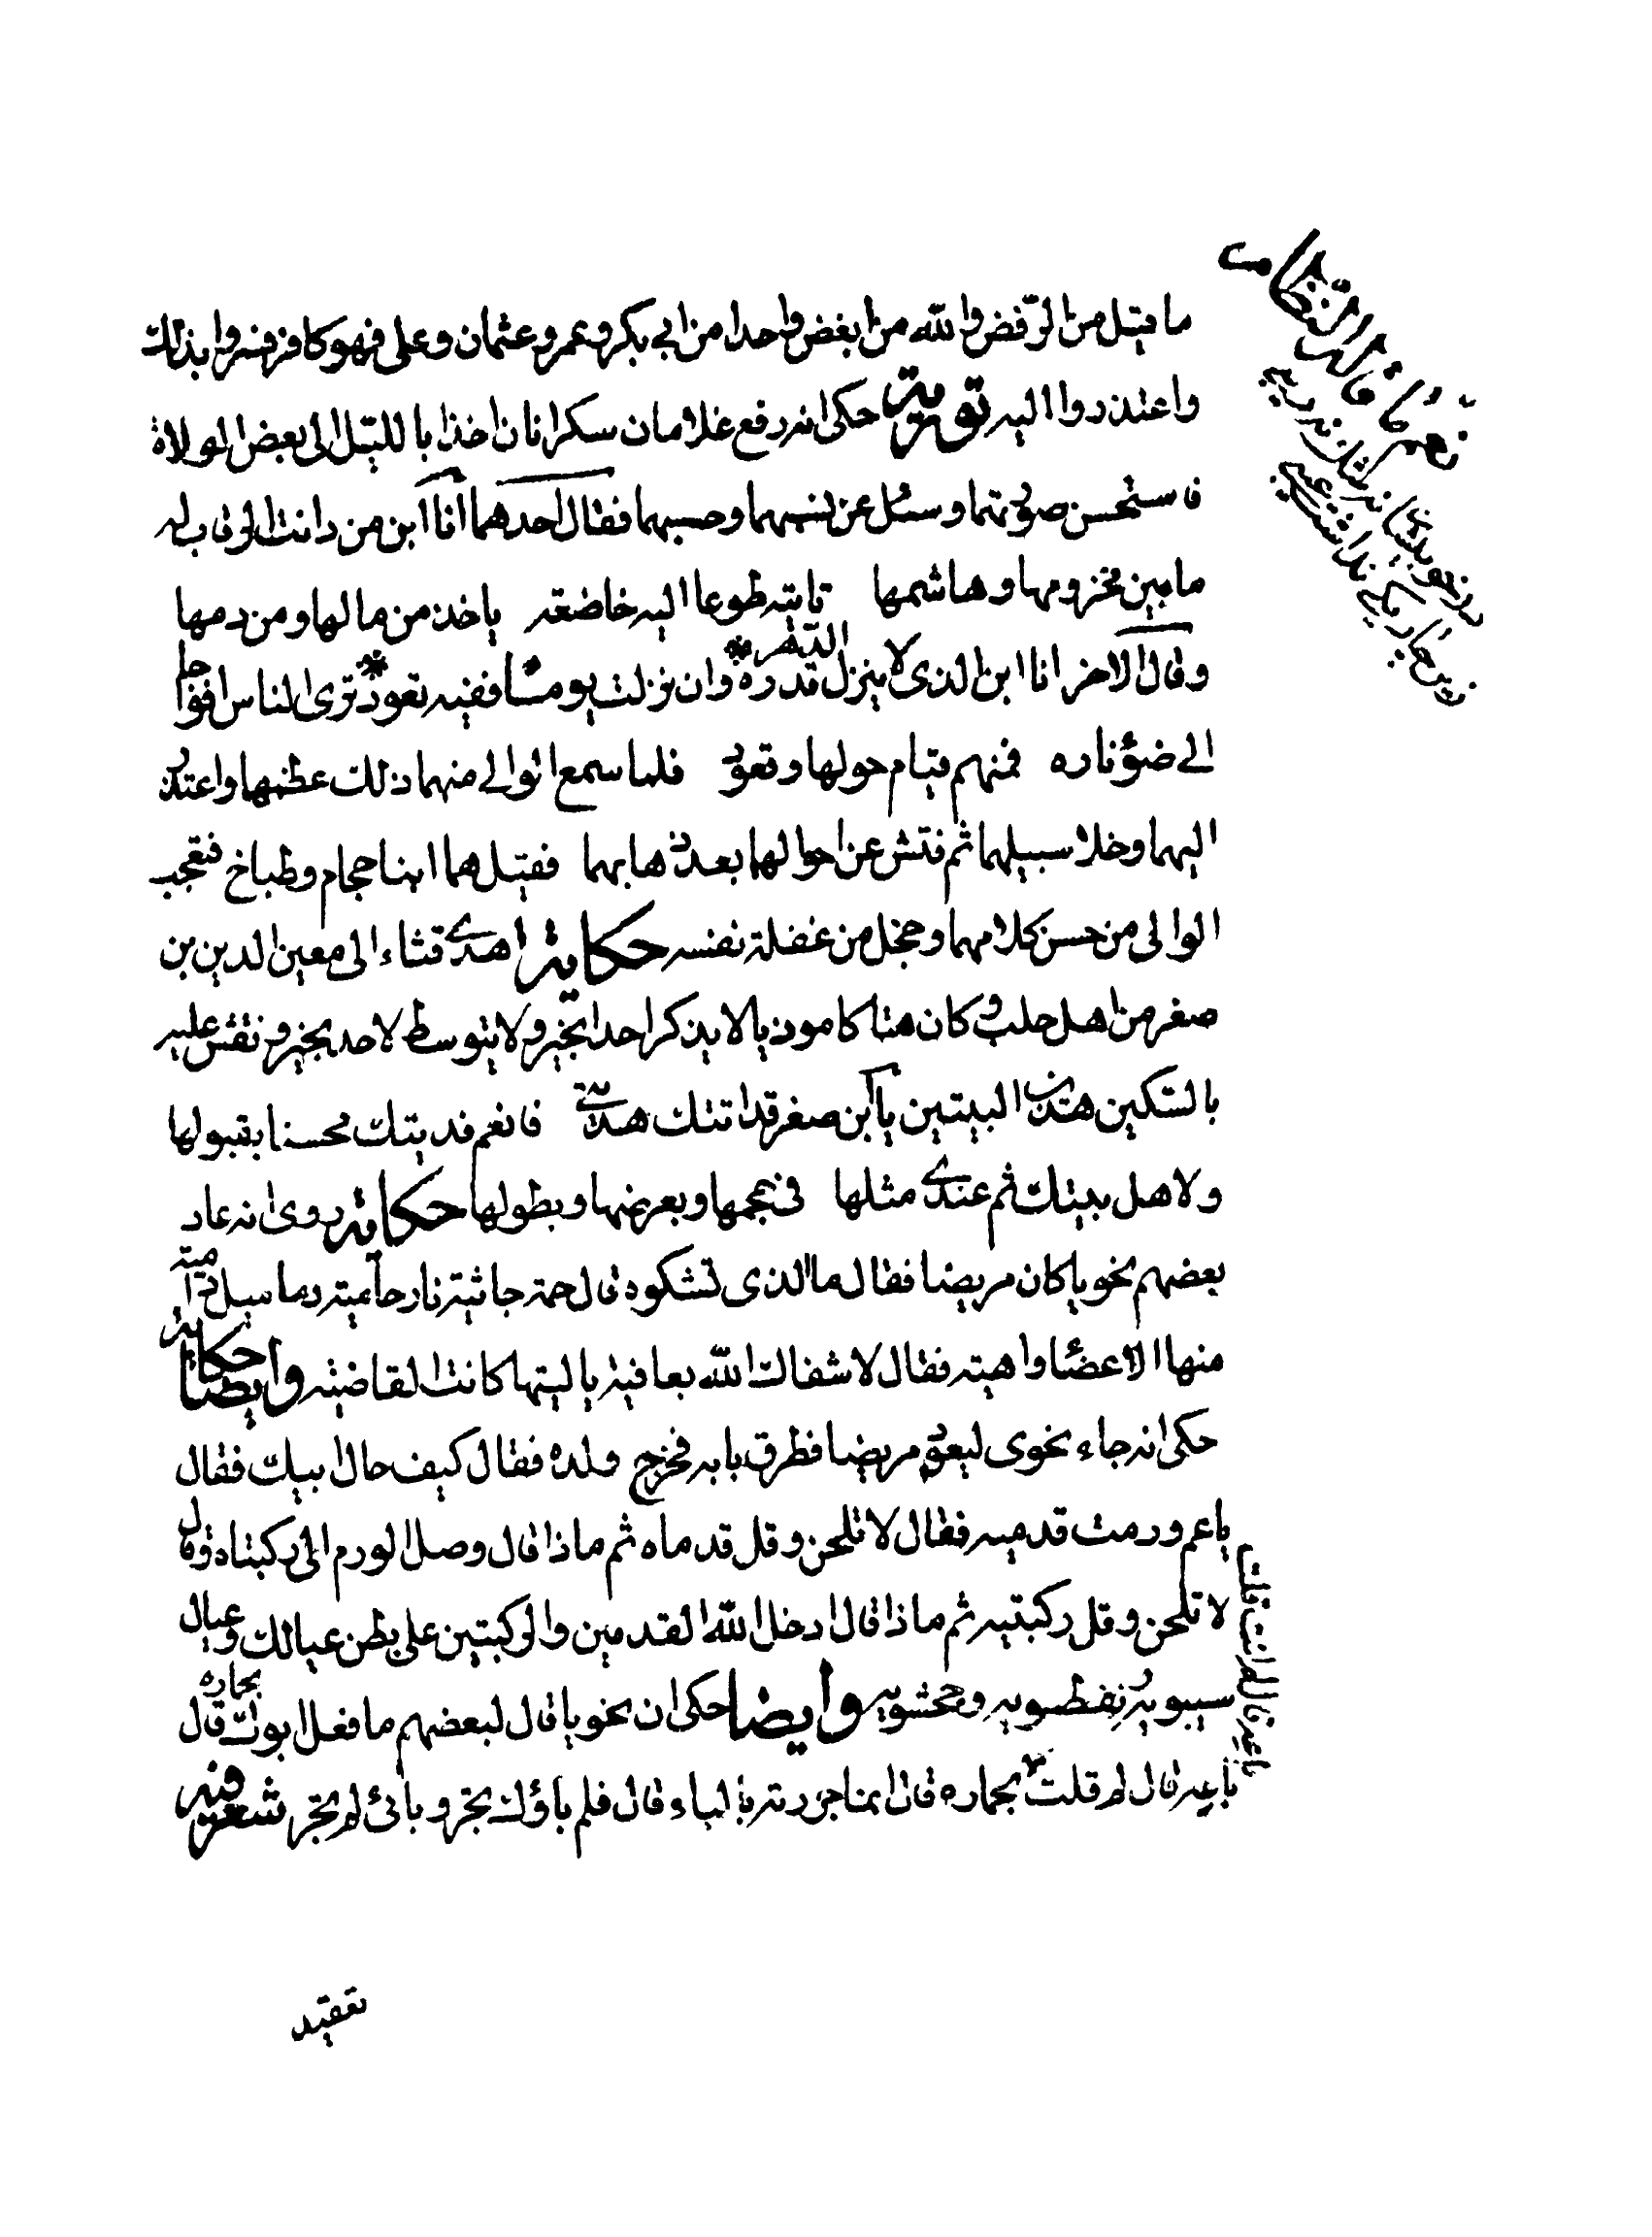 ما قيل من الرفض والله من ابغض واحدا من ابي بكر وعمر وعثمان وعلى فهو كافر فسروا بذلك
واعتذروا اليه تورية حكى انه رفع غلامان سكرانان اخذا بالليل الى بعض الولاة
فاستحسن صورتهما وسئل عن نسبهما وحسبهما فقال احدهما انا ابن من دانت الرقاب له
ما بين مخزومها وهاشمها تاتيه طوعا اليه خاضعة ياخذ من مالها ومن دمها
وقال الاخر انا ابن الذى لا ينزل الدهر قدره وان نزلت يوما فقيه تعود ترى الناس افواجا
الى ضؤ ناره فمنهم قيام حولها وقعود فلما سمع الوالى منهما ذلك عظمها واعتذر
اليهما وخلا سبيلهما ثم فتش عن احوالهما بعد ذهابهما فقيل هما ابنا حجام وطباخ فتعجب
الوالى من حسن كلامهما وخجل من غفلة نفسه حكاية اهدى قثاء الى معين الدين بن
صغر من اهل حلب وكان هتاكا موذيا لا يذكر احدا بخير ولا يتوسط لاحد بخير ونقش عليه
بالسكين هذين البيتين يا ابن صغر قد اتتك هديتى فانعم فديتك محسنا بقبولها
ولاهل بيتك ثم عندى مثلها فى حجمها وبعرضها وبطولها حكاية روى انه عاد
بعضهم نحويا كان مريضا فقال ما الذى تشكوه قال حمة جاثية نار حامية دماميل دامية
منها الاعضا واهية فقال لا شفاك الله بعافية يا ليتها كانت القاضية وايضا حكاية
حكى انه جاء نحوى ليعود مريضا فطرق بابه فخرج ولده فقال كيف حال ابيك فقال
يا عم ورمت قدميه فقال لا تلحن وقل قدماه ثم ماذا قال وصل الورم الى ركبتاه وقال
لا تلحن وقل ركبتيه ثم ماذا قال ادخل الله القدمين والركبتين على بطن عيالك وعيال
سيبويه نفطويه وجحشويه وايضا حكى ان نحويا قال لبعضهم ما فعل ابوك بحماره قال
باعه قال لم قلت بحماره قال انما جررته بالباء قال فلم باؤك تجر وبائى لم تجر شعر فيه
باعه قال لم انت قلت
تعقيد